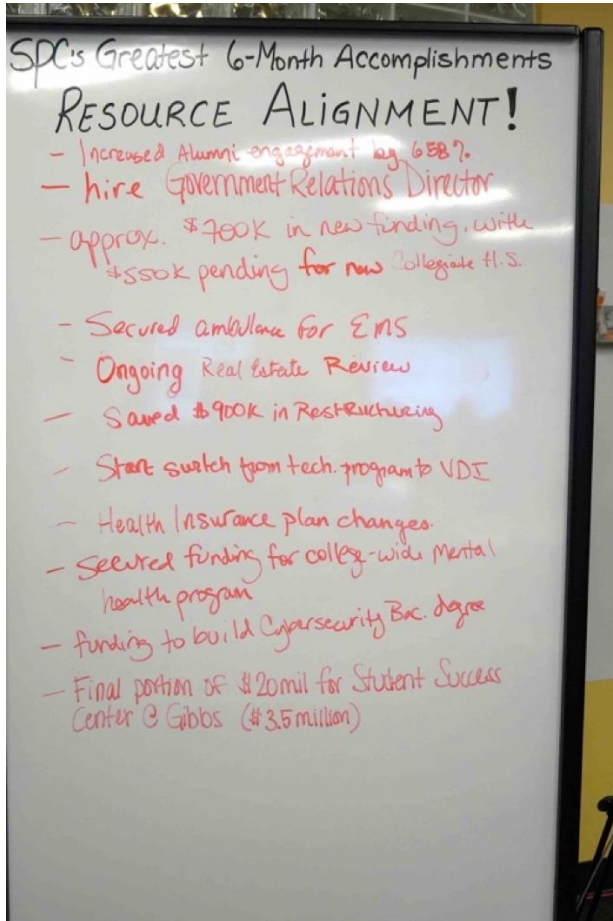 SPC's Greatest 6-Month Accomplishments
RESOURCE ALIGNMENT!
- Increased Alumni engagement by 658%
- hire Government Relations Director
- approx. $700K in new funding, with
$550K pending for new Collegiate H.S.
- Secured ambulance for EMS
- Ongoing Real Estate Review
- Saved $900K in Restructuring
- Start switch from tech. program to VDI
- Health Insurance plan changes.
- Secured funding for college-wide Mental
health program
- funding to build Cybersecurity Bac. degree
- Final portion of $20mil for Student Success
Center @ Gibbs ($3.5 million)